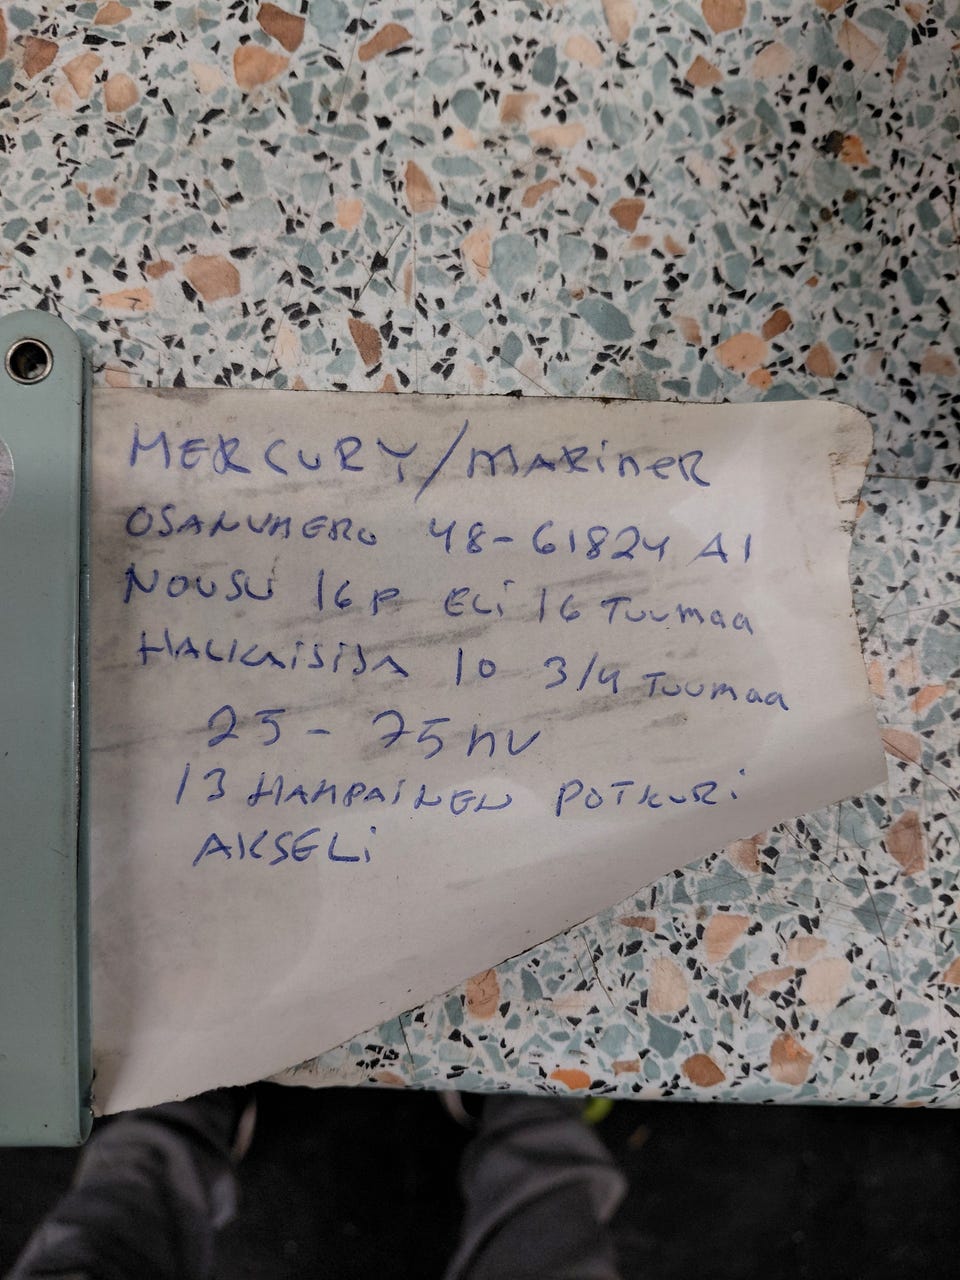 MERCURY/MARINER
OSANUMERO 48-61824 A1
NOUSU 16P ELI 16 TUUMAA
HALKAISIJA 10 3/4 TUUMAA
25 - 75 HV
13 HAMPAINEN POTKURI
AKSELI